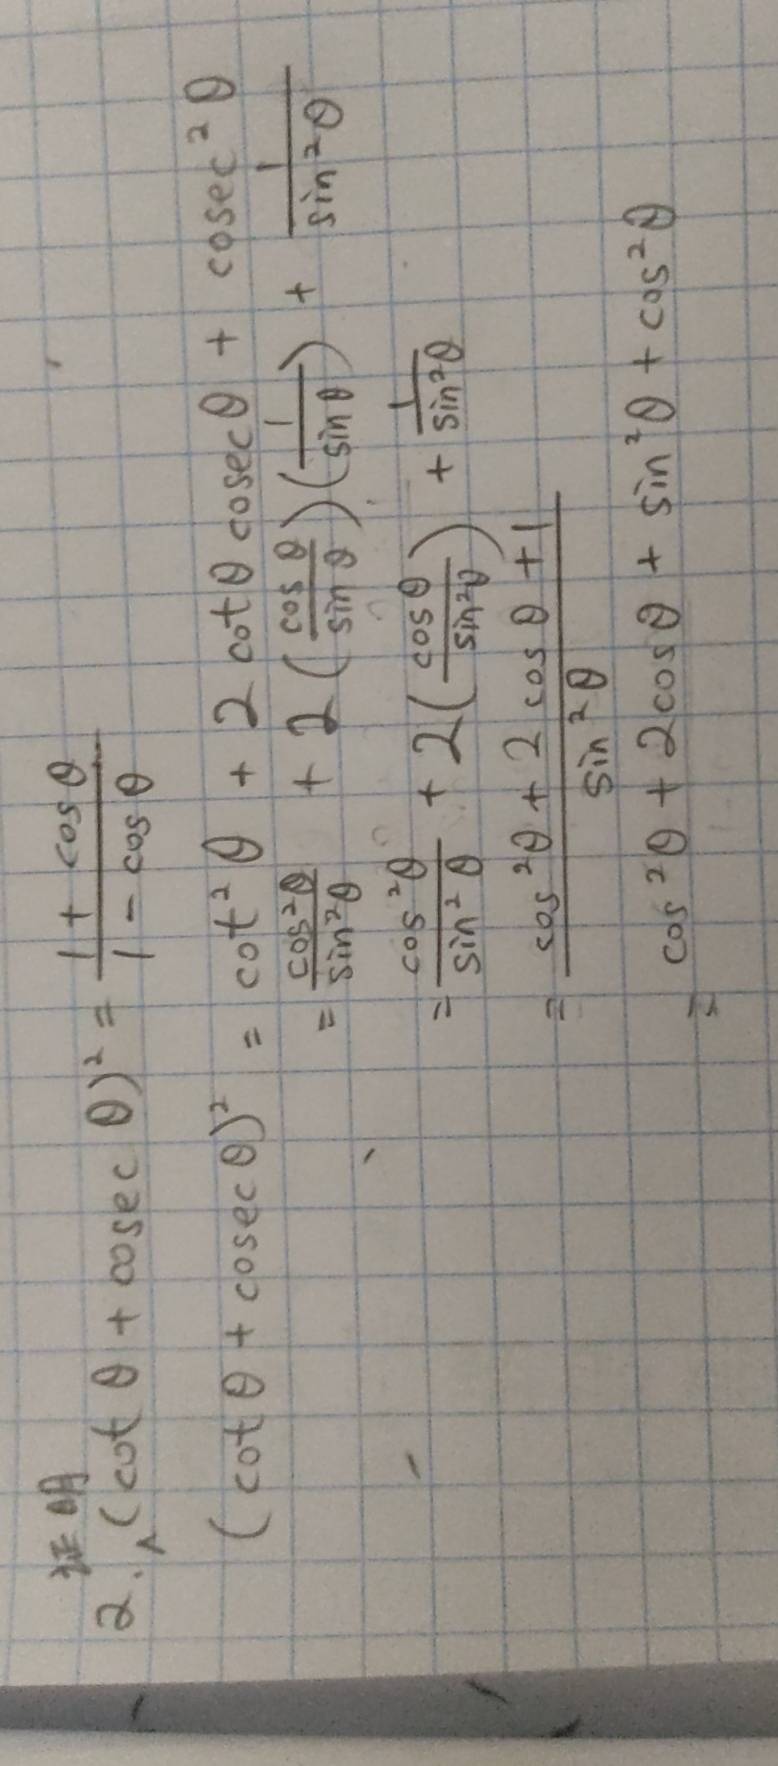 2. 证明 (cot θ + cosec θ)² = (1 + cos θ)/(1 − cos θ)
(cot θ + cosec θ)² = cot² θ + 2 cot θ cosec θ + cosec² θ
= cos²θ/sin²θ + 2(cos θ/sin θ)(1/sin θ) + 1/sin²θ
= cos²θ/sin²θ + 2(cos θ/sin²θ) + 1/sin²θ
= (cos²θ + 2 cos θ + 1)/sin²θ
= cos²θ + 2cos θ + sin²θ + cos²θ